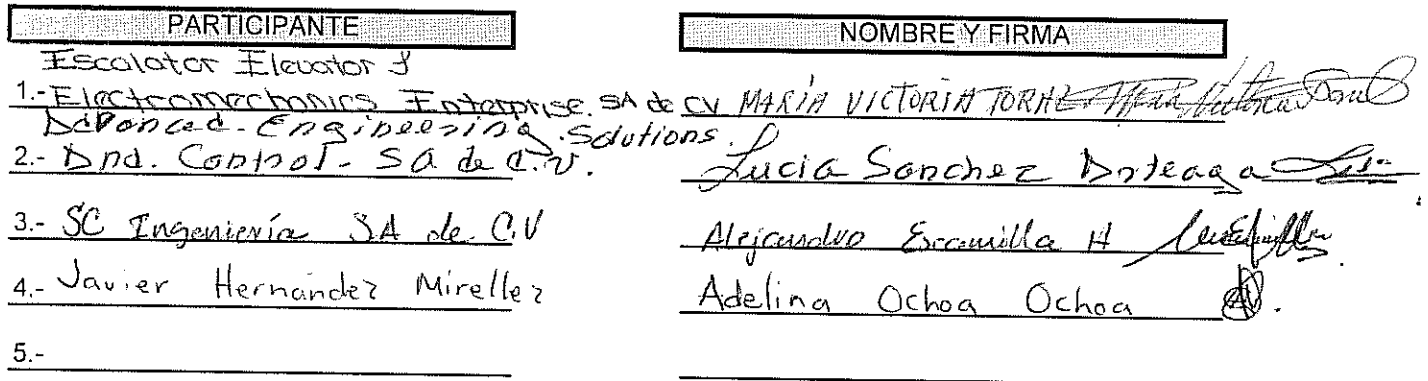 PARTICIPANTE NOMBRE Y FIRMA
Escalator Elevator y
1.- Electromechanics Enterprise. SA de CV MARÍA VICTORIA TORAL
Advanced. Engineering. Solutions.
2.- And. Control - SA de C.V. Lucia Sanchez Arteaga
3.- SC Ingeniería SA de C.V Alejandro Escamilla H
4.- Javier Hernández Mirellez Adelina Ochoa Ochoa
5.-